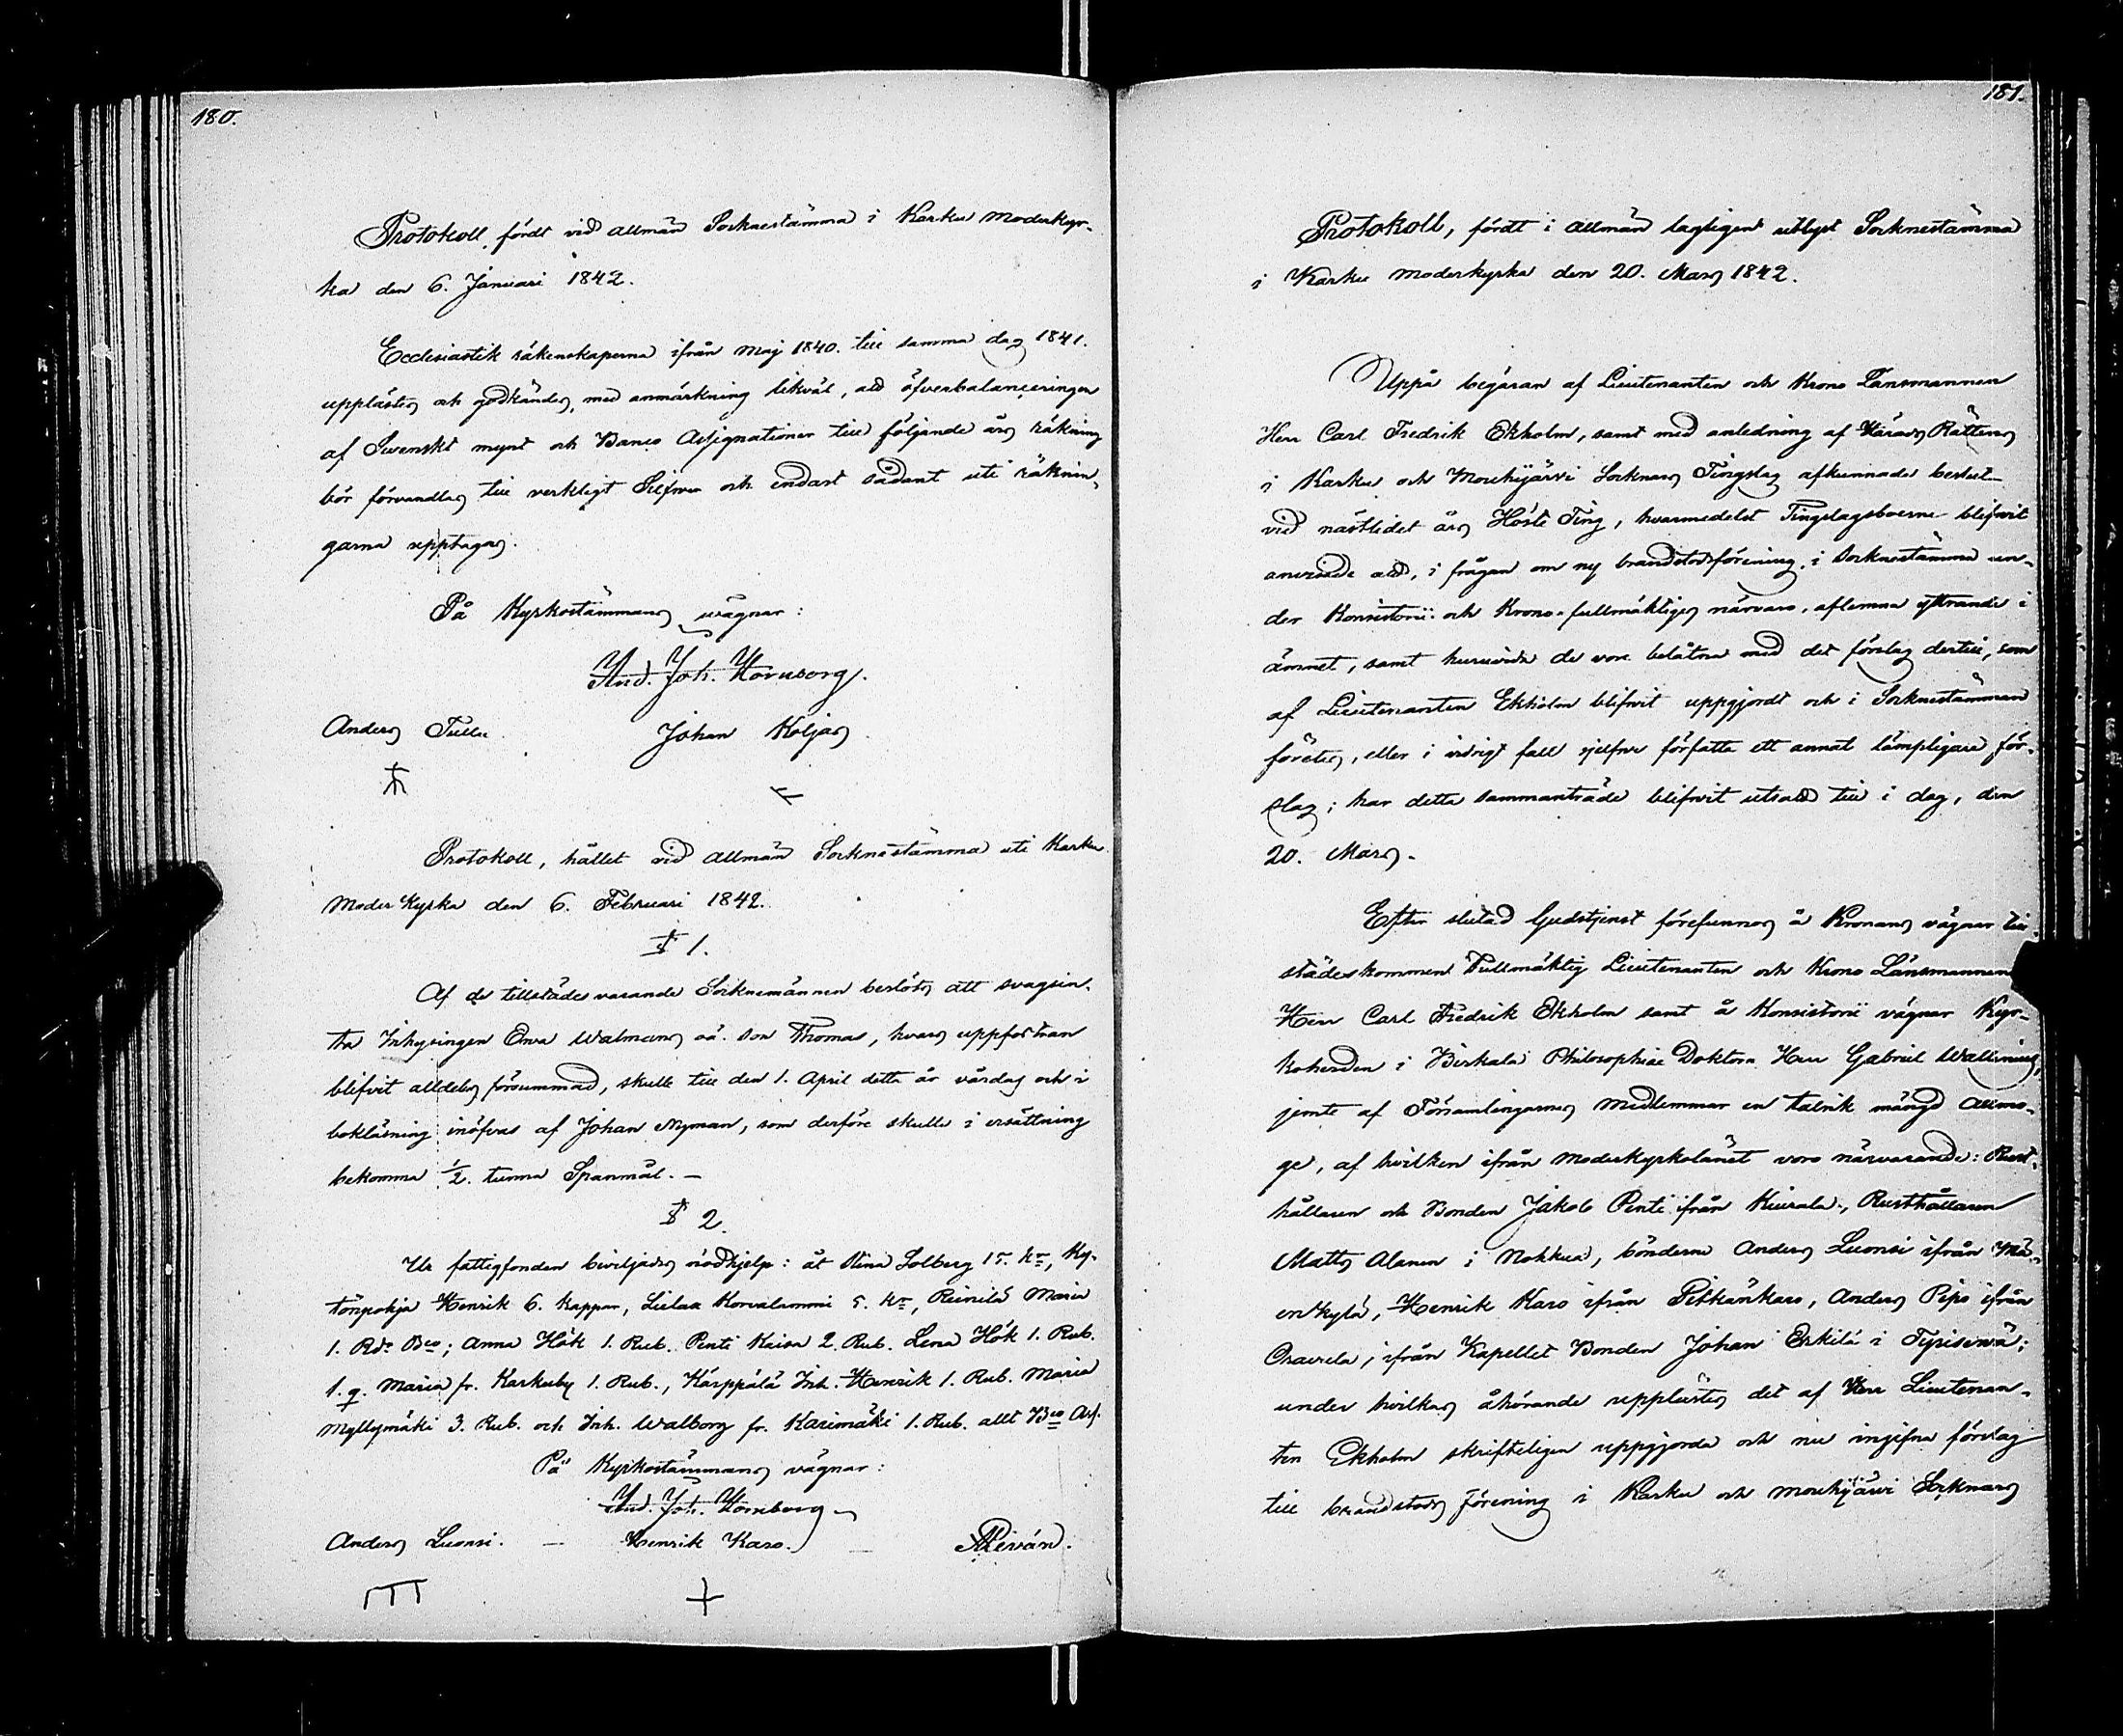 180.
Protokoll, fördt vid allmän Socknestämma i Karku moderkyr-
ka den 6. Januari 1842.
Ecclesiastik räkenskaperna ifrån Maj 1840. till samma dag 1841.
upplästes och godkändes, med anmärkning likväl, att öfverbalanceringen
af Svenskt mynt och Banco Assignationer till följande års räkning
bör förvandlas till verkligt Silfver och endast sådant uti räknin-
garna upptagas.
På Kyrkostämmans vägnar:
And. Joh. Hornborg.
Anders Tulu. Johan Koljas
Protokoll, hållet vid allmän Socknestämma uti Karku
Moder Kyrka den 6. Februari 1842.
§ 1.
Af de tillstädes varande Socknemännen beslöts att svagsin-
ta Inhysingen Ewa Walmans oä. son Thomas, hvars uppfostran
blifvit alldeles försummad, skulle till den 1. April detta år vårdas och i
boklåsning inöfvas af Johan Nyman, som derföre skulle i ersättning
bekomma 1/2. tunna Spanmål. —
§ 2.
Ur fattigfonden beviljades nödhjelp: åt Stina Solberg 15. kr, Ky-
tönpohja Henrik 6. kappar, Liena Korvalammi 5. kr, Reinilä Maria
1. Rdr Bco; Anna Hök 1. Rub. Penti Kaisa 2. Rub. Lena Hök 1. Rub.
1. q. Maria fr. Karkuby 1. Rub., Kärppälä Inh. Henrik 1. Rub. Maria
Myllymäki 3. Rub. och Inh. Walborg fr. Karimäki 1. Rub. allt Bco Ass.
På Kyrkostämmans vägnar:
And. Joh. Hornborg
Anders Luonsi. — Henrik Karo. —
181.
Protokoll, fördt i allmän lagligen utlyst Socknestämma
i Karku moderkyrka den 20. Mars 1842.
Uppå begäran af Lieutenanten och Krono Länsmannen
Herr Carl Fredrik Ekholm, samt med anledning af Härads Rättens
i Karku och Mouhijärvi Socknars Tingslag afkunnade beslut
vid nästlidet års Höste Ting, hvarmedelst Tingslagsboerne blifvit
anviste att, i frågan om ny brandstodsförening, i Socknestämma un-
der Konsistorii- och Krono-fullmäktiges närvaro, aflemna yttrande i
ämnet, samt huruvida de vore belåtne med det förslag dertill, som
af Lieutenanten Ekholm blifvit uppgjordt och i Socknestämman
företes, eller i vidrigt fall sjelfve författa ett annat lämpligare för-
slag; har detta sammanträde blifvit utsatt till i dag, den
20. Mars.
Efter slutad Gudstjenst förefunnos å Kronans vägnar till-
städeskommen Fullmäktig Lieutenanten och Krono Länsmannen
Herr Carl Fredrik Ekholm samt å Konsistorii vägnar Kyr-
koherden i Birkala Philosophiae Doktorn Herr Gabriel Wallenius,
jemte af Församlingarnes Medlemmar en talrik mängd Allmo-
ge, af hvilken ifrån Moderkyrkolänet voro närvarande: Rust-
hållaren och Bonden Jakob Penti ifrån Kiurala, Rusthållaren
Matts Alanen i Nokkua, bönderne Anders Luonsi ifrån Mä-
enkylä, Henrik Karo ifrån Pitkänkaro, Anders Pipo ifrån
ifrån Kapellet Bonden Johan Erkilä i Tyrisevä;
under hvilkas åhörande upplästes det af Herr Lieutenan-
ten Ekholm skrifteligen uppgjorda och nu ingifna förslag
till brandstods förening i Karku och Mouhijärvi Socknars